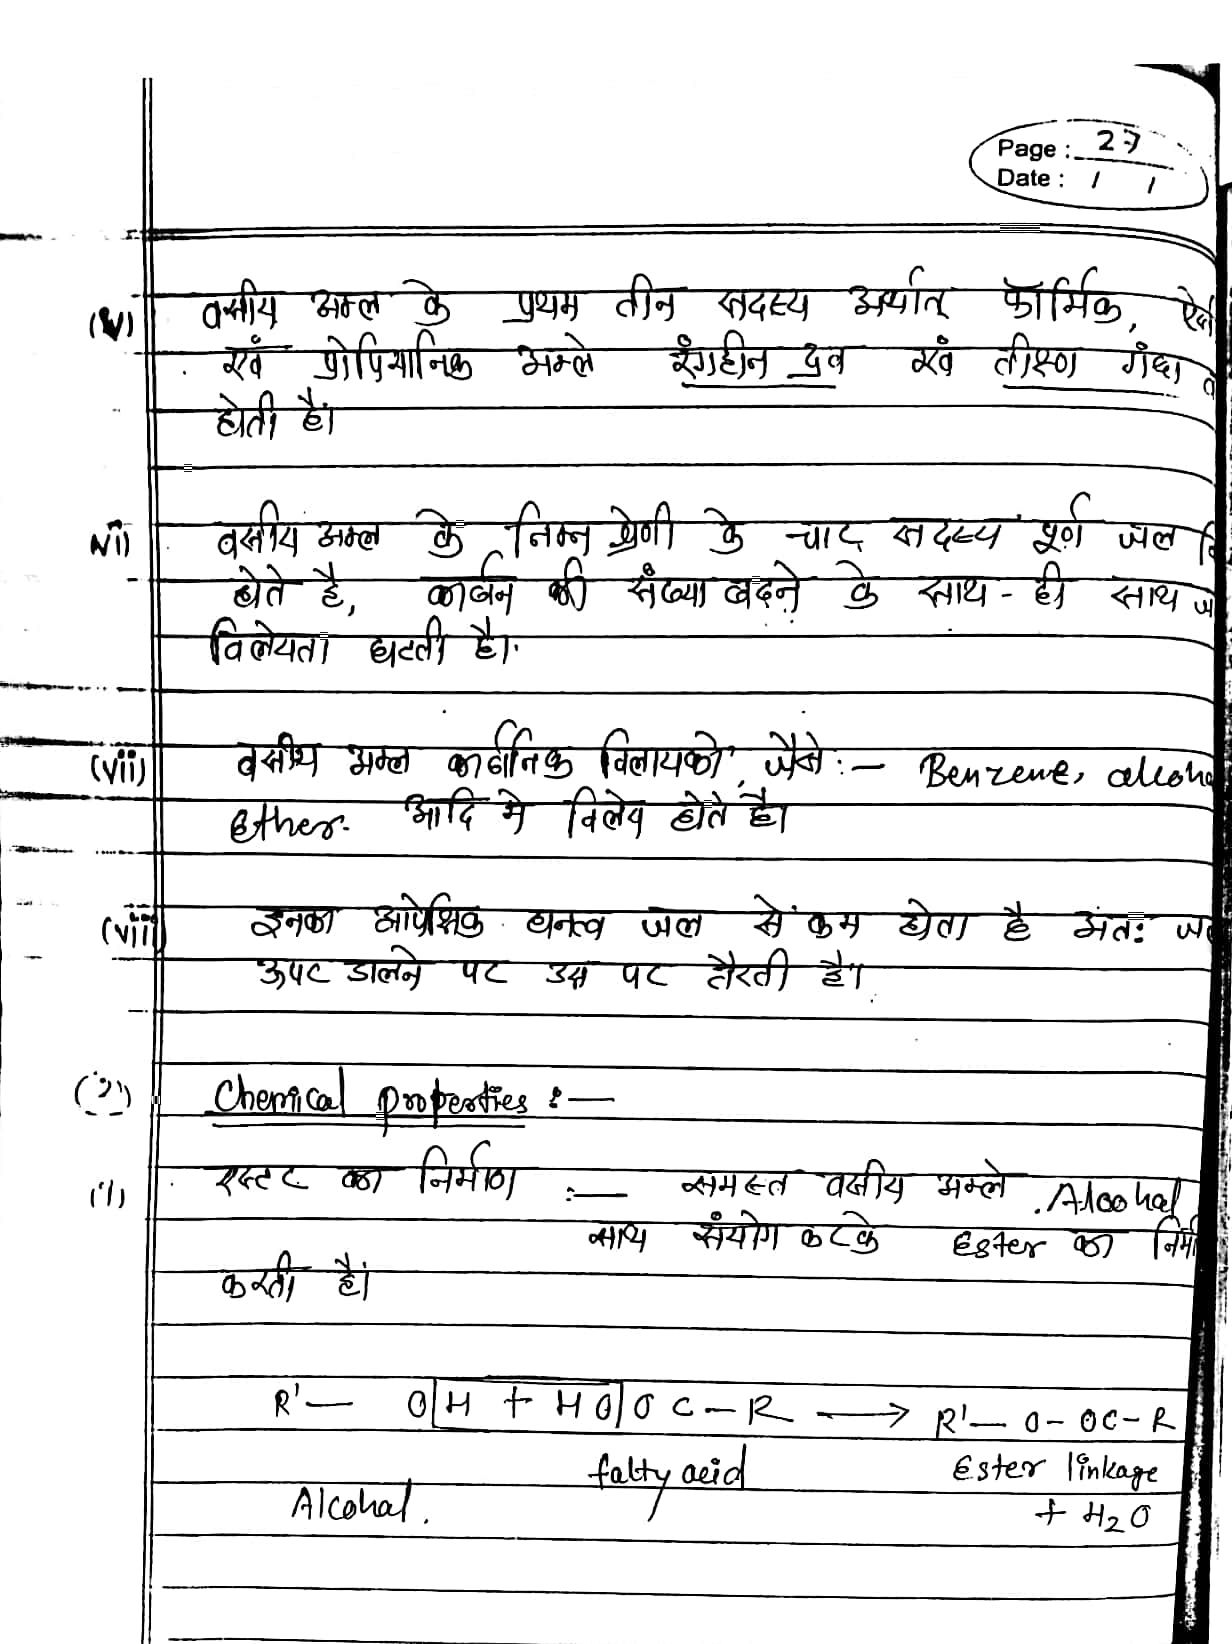 Page : 27
Date : / /
(v) वसीय अम्ल के प्रथम तीन सदस्य अर्थात् फॉर्मिक,
एवं प्रोपियानिक अम्ले रंगहीन द्रव एवं तीक्ष्ण गंध
होती है।
vi) वसीय अम्ल के निम्न श्रेणी के चार सदस्य पूर्ण जल
होते है, कार्बन की संख्या बढ़ने के साथ - ही साथ
विलेयता घटती है।
(vii) वसीय अम्ल कार्बनिक विलायको, जैसे :— Benzene,
Ether. आदि मे विलेय होते है।
(viii) इनका आपेक्षिक घनत्व जल से कम होता है अंतः
ऊपर डालने पर उस पर तैरती है।
(2) Chemical properties :—
(1) एस्टर का निर्माण :— समस्त वसीय अम्ले Alcohal
साथ संयोग करके Ester का
करती है।
R'— OH + HO OC — R ⟶ R'— O - OC - R
fatty acid Ester linkage
Alcohal. + H₂O